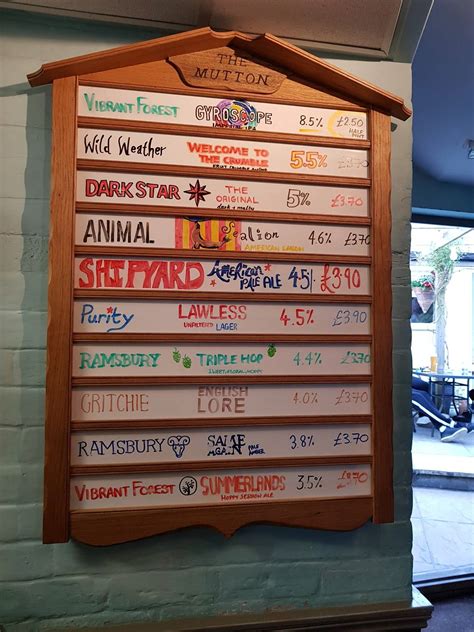 THE
MUTTON
VIBRANT FOREST GYROSCOPE 8.5% £2.50
IMPERIAL IPA HALF PINT
Wild Weather WELCOME TO THE CRUMBLE 5.5% £3.70
DARK STAR THE ORIGINAL 5% £3.70
dark & malty
ANIMAL Sealion 4.6% £3.70
AMERICAN
SHIPYARD American PALE ALE 4.5% £3.90
Purity LAWLESS 4.5% £3.90
UNFILTERED LAGER
RAMSBURY TRIPLE HOP 4.4% £3.70
GRITCHIE ENGLISH LORE 4.0% £3.70
RAMSBURY SAME AGAIN 3.8% £3.70
PALE AMBER
VIBRANT FOREST SUMMERLANDS 3.5% £3.70
HOPPY SESSION ALE